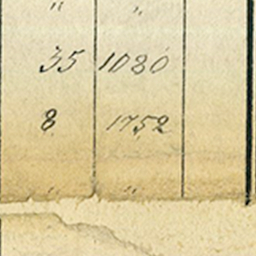 " "
35 1080
8 1752
" "